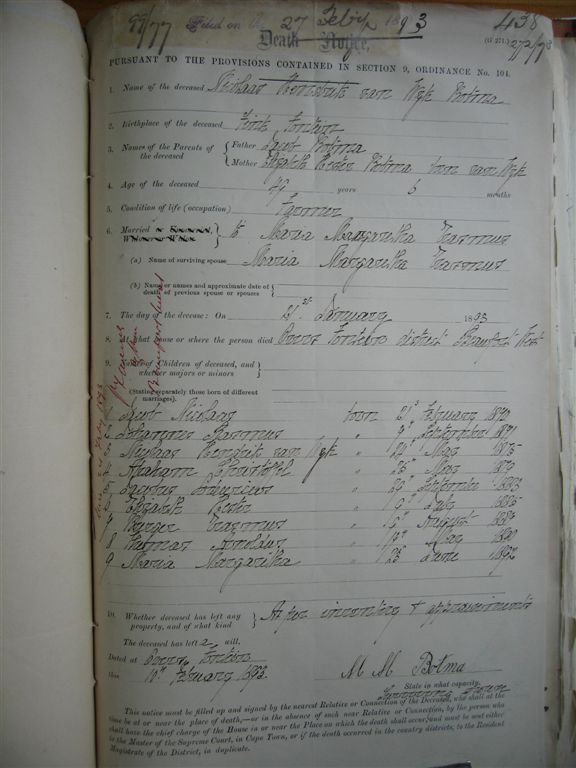 99/77 Filed on the 27 Feby 1893
438
Death Notice,
272/93
PURSUANT TO THE PROVISIONS CONTAINED IN SECTION 9, ORDINANCE No. 104.
1. Name of the deceased Nicolaas Hendrik van Wyk Botma
2. Birthplace of the deceased Fontein
3. Names of the Parents of the deceased { Father Jacob Botma
Mother Elizabeth Hester Botma born van Wyk
4. Age of the deceased 49 years 6 months
5. Condition of life (occupation) Farmer
6. Married to Maria Margaretha Erasmus
(a) Name of surviving spouse Maria Margaretha Erasmus
(b) Name or names and approximate date of death of previous spouse or spouses
7. The day of the decease: On 21st January 1893
8. At what house or where the person died Fontein district Beaufort West
9. Names of Children of deceased, and whether majors or minors
(Stating separately those born of different marriages).
Jacob Nicolaas born 21st February 1870
Johannes Erasmus " September 1871
Nicolaas Hendrik van Wyk " May 1875
Abraham " May 1879
" September 1883
Elizabeth Hester " July 1885
7 Erasmus " August
8 Arnoldus " May 1890
9 Maria Margaretha " June 1892
10. Whether deceased has left any property, and of what kind } As per inventory & appraisements
The deceased has left a will.
Dated at Fontein
this 10th February 1893.
M M Botma
State in what capacity.
Surviving Spouse
This notice must be filled up and signed by the nearest Relative or Connection of the Deceased, who shall at the
time be at or near the place of death,—or in the absence of such near Relative or Connection, by the person who
shall have the chief charge of the House in or near the Place on which the death shall occur; and must be sent either
to the Master of the Supreme Court, in Cape Town, or if the death occurred in the country districts, to the Resident
Magistrate of the District, in duplicate.